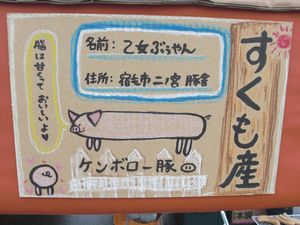 すくも産
名前: 乙女ぶぅやん
住所: 宿毛市二ノ宮 豚舎
脂は甘くって
おいしいよ♥
ケンボロー豚